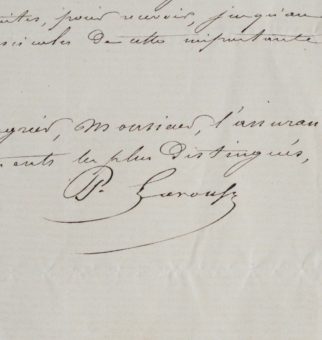 ites, pour recevoir, jusqu'au
scicules de cette importante
gréer, Monsieur, l'assuran
ments les plus distingués,
P. Larousse